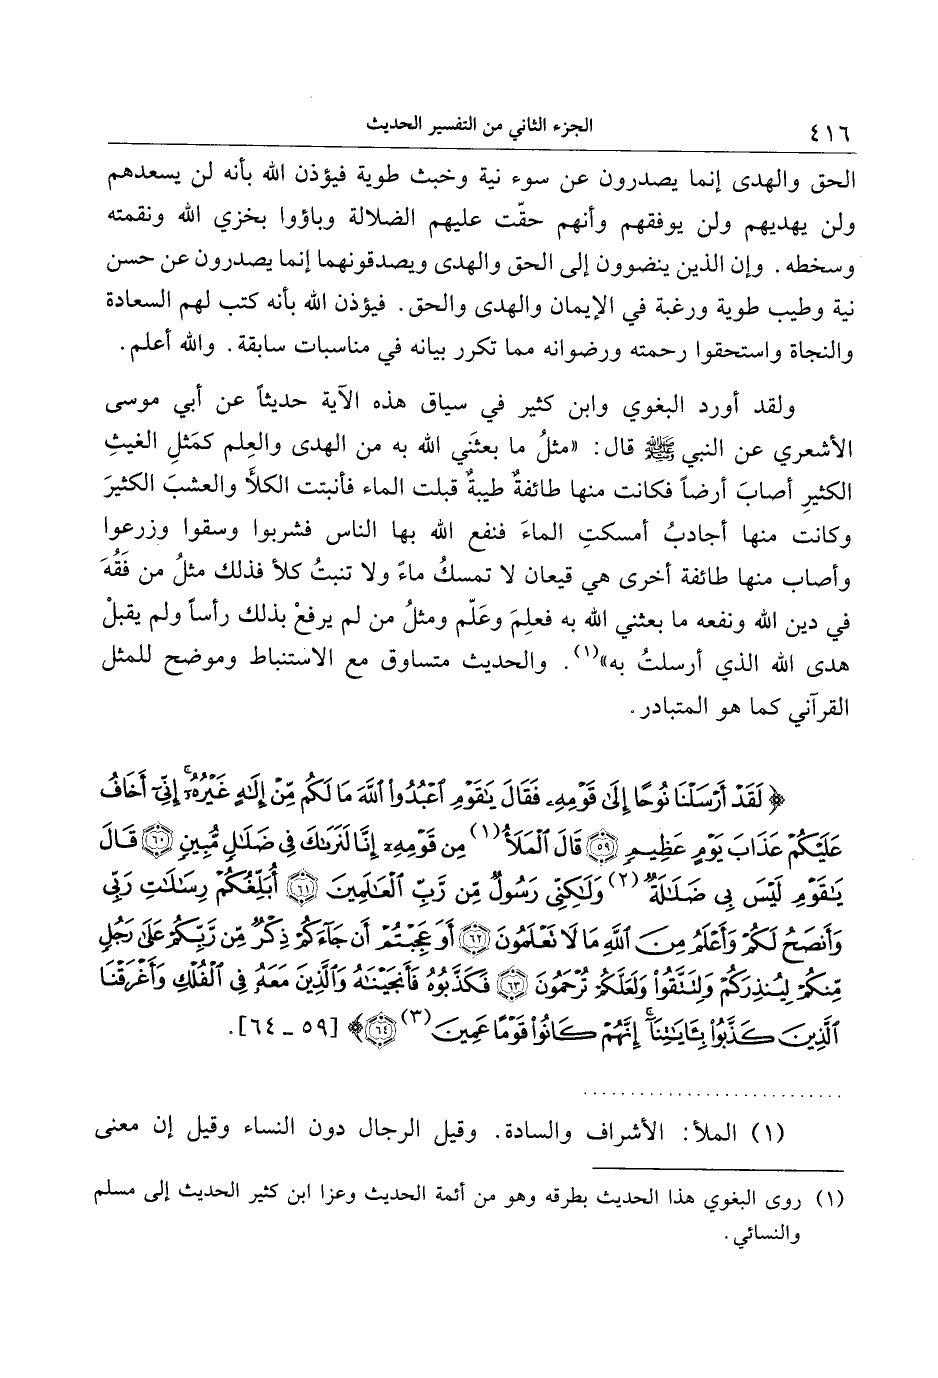 ٤١٦ الجزء الثاني من التفسير الحديث
الحق والهدى إنما يصدرون عن سوء نية وخبث طوية فيؤذن الله بأنه لن يسعدهم
ولن يهديهم ولن يوفقهم وأنهم حقّت عليهم الضلالة وباؤوا بخزي الله ونقمته
وسخطه. وإن الذين ينضوون إلى الحق والهدى ويصدقونهما إنما يصدرون عن حسن
نية وطيب طوية ورغبة في الإيمان والهدى والحق. فيؤذن الله بأنه كتب لهم السعادة
والنجاة واستحقوا رحمته ورضوانه مما تكرر بيانه في مناسبات سابقة. والله أعلم.
ولقد أورد البغوي وابن كثير في سياق هذه الآية حديثاً عن أبي موسى
الأشعري عن النبي ﷺ قال: «مثلُ ما بعثَني الله به من الهدى والعِلم كمَثلِ الغيثِ
الكثيرِ أصابَ أرضاً فكانت منها طائفةٌ طيبةٌ قبلت الماء فأنبتت الكلأَ والعشبَ الكثيرَ
وكانت منها أجادبُ أمسكتِ الماءَ فنفع الله بها الناس فشربوا وسقوا وزرعوا
وأصاب منها طائفة أخرى هي قيعان لا تمسكُ ماءً ولا تنبتُ كلأ فذلك مثلُ من فَقُهَ
في دين الله ونفعه ما بعثني الله به فعلِمَ وعَلّم ومثلُ من لم يرفعْ بذلك رأساً ولم يقبلْ
هدى الله الذي أرسلتُ به»(١). والحديث متساوق مع الاستنباط وموضح للمثل
القرآني كما هو المتبادر.
﴿ لَقَدْ أَرْسَلْنَا نُوحًا إِلَىٰ قَوْمِهِۦ فَقَالَ يَٰقَوْمِ ٱعْبُدُوا۟ ٱللَّهَ مَا لَكُم مِّنْ إِلَٰهٍ غَيْرُهُۥٓ ۚ إِنِّىٓ أَخَافُ
عَلَيْكُمْ عَذَابَ يَوْمٍ عَظِيمٍ ٥٩ قَالَ ٱلْمَلَأُ (١) مِن قَوْمِهِۦٓ إِنَّا لَنَرَىٰكَ فِى ضَلَٰلٍ مُّبِينٍ ٦٠ قَالَ
يَٰقَوْمِ لَيْسَ بِى ضَلَٰلَةٌ (٢) وَلَٰكِنِّى رَسُولٌ مِّن رَّبِّ ٱلْعَٰلَمِينَ ٦١ أُبَلِّغُكُمْ رِسَٰلَٰتِ رَبِّى
وَأَنصَحُ لَكُمْ وَأَعْلَمُ مِنَ ٱللَّهِ مَا لَا تَعْلَمُونَ ٦٢ أَوَعَجِبْتُمْ أَن جَآءَكُمْ ذِكْرٌ مِّن رَّبِّكُمْ عَلَىٰ رَجُلٍ
مِّنكُمْ لِيُنذِرَكُمْ وَلِتَتَّقُوا۟ وَلَعَلَّكُمْ تُرْحَمُونَ ٦٣ فَكَذَّبُوهُ فَأَنجَيْنَٰهُ وَٱلَّذِينَ مَعَهُۥ فِى ٱلْفُلْكِ وَأَغْرَقْنَا
ٱلَّذِينَ كَذَّبُوا۟ بِـَٔايَٰتِنَآ ۚ إِنَّهُمْ كَانُوا۟ قَوْمًا عَمِينَ (٣) ٦٤ ﴾ [٥٩ ـ ٦٤].
(١) الملأ: الأشراف والسادة. وقيل الرجال دون النساء وقيل إن معنى
(١) روى البغوي هذا الحديث بطرقه وهو من أئمة الحديث وعزا ابن كثير الحديث إلى مسلم
والنسائي.